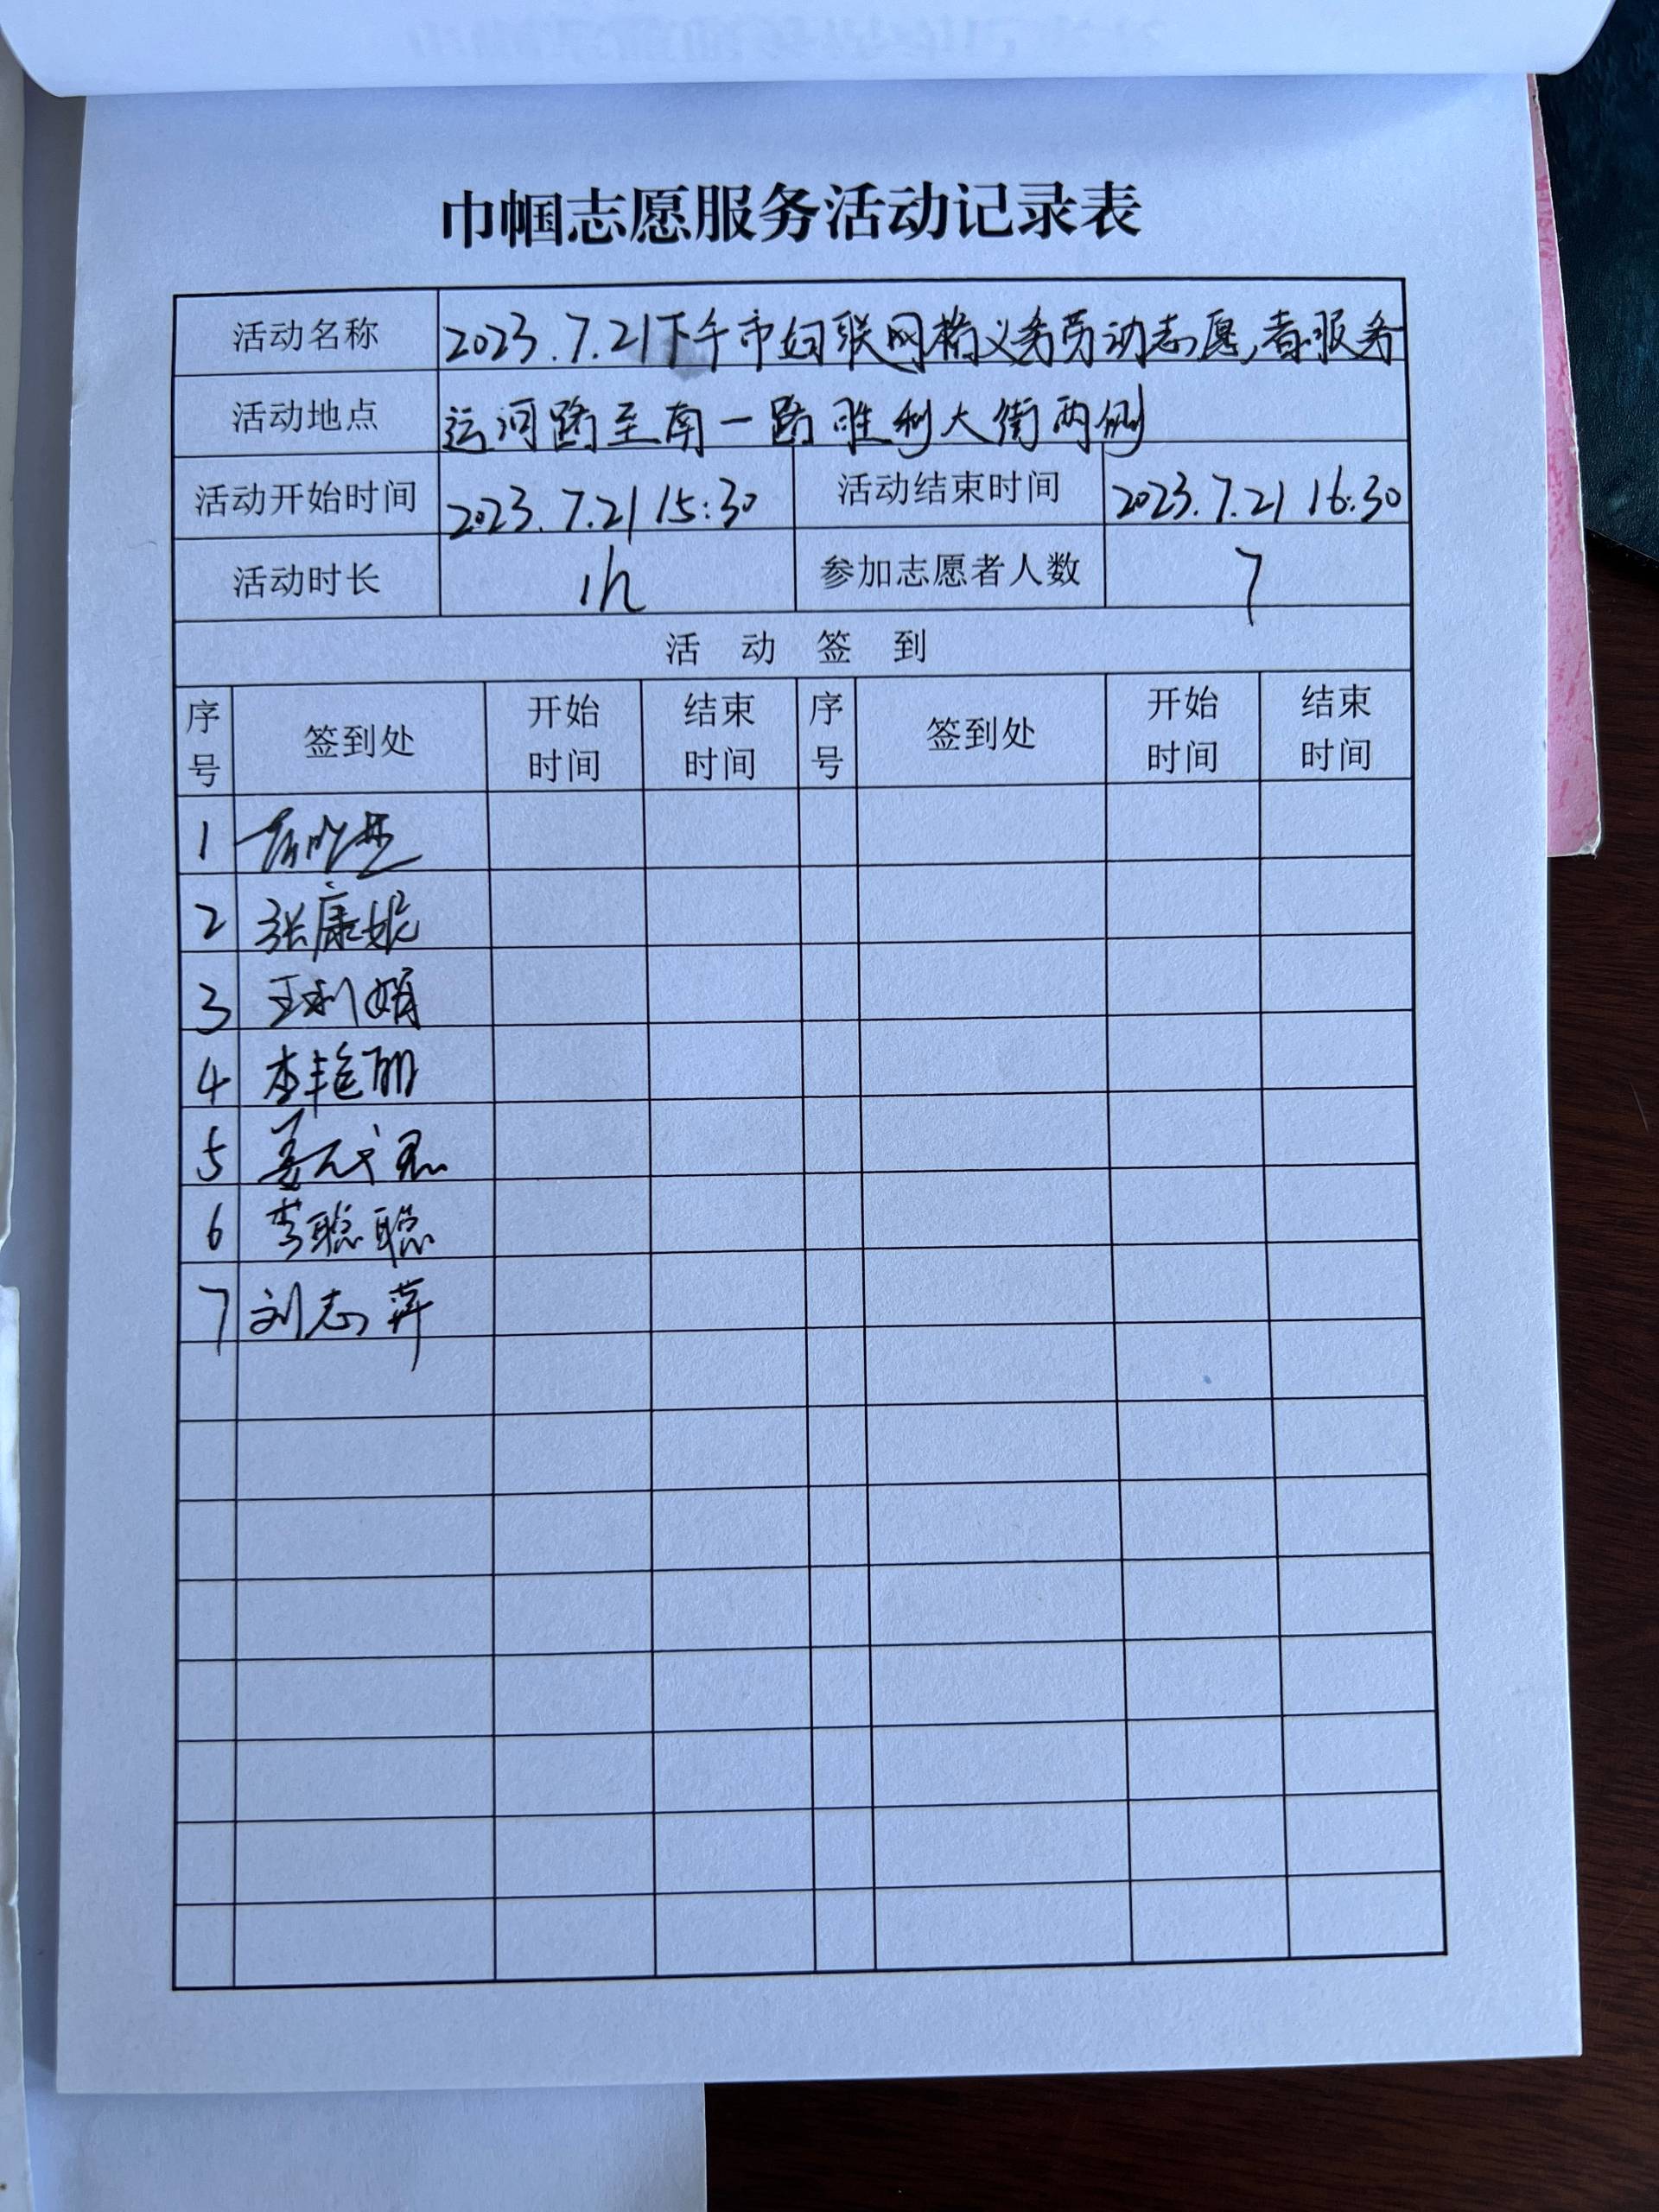 巾帼志愿服务活动记录表
活动名称 2023.7.21下午市妇联网格义务劳动志愿者服务
活动地点 运河路至南一路胜利大街两侧
活动开始时间 2023.7.21 15:30 活动结束时间 2023.7.21 16:30
活动时长 1h 参加志愿者人数 7
活动签到
序号 签到处 开始时间 结束时间 序号 签到处 开始时间 结束时间
1
2 张康妮
3 王利娟
4 李艳丽
5 姜
6 李聪聪
7 刘志萍